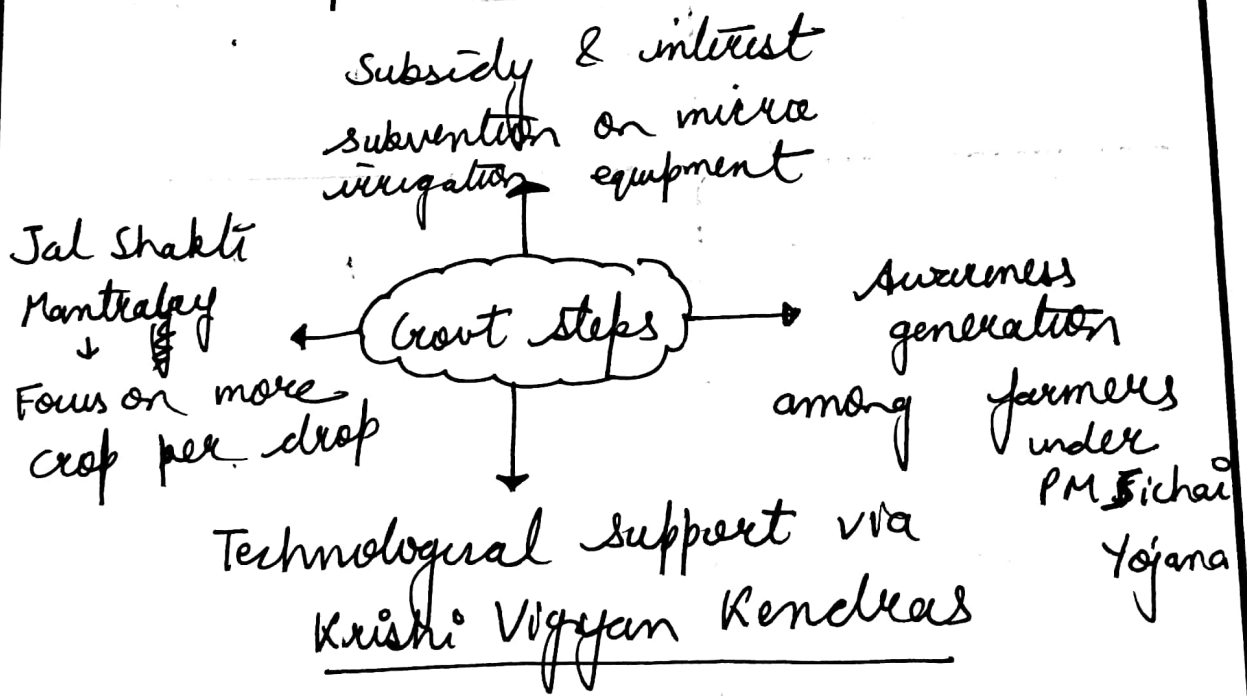 Subsidy & interest
subvention on micro
irrigation equipment
Jal Shakti
Mantralay
↓
Focus on more
crop per drop
Govt steps
Awareness
generation
among farmers
under
PM Sichai
Yojana
Technological support via
Krishi Vigyan Kendras